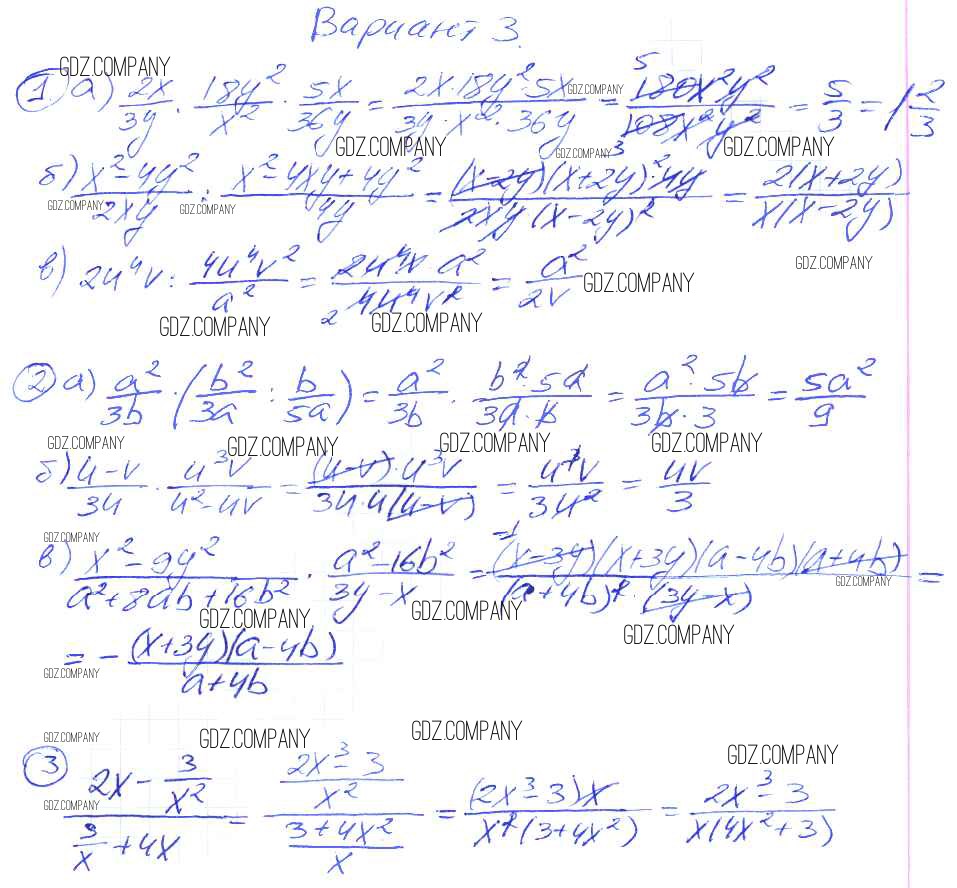 Вариант 3.
GDZ.COMPANY
1 а) 2x/3y · 18y²/x² · 5x/36y = 2x·18y²·5x/3y·x²·36y = 180x²y²/108x²y² = 5/3 = 1 2/3
GDZ.COMPANY
GDZ.COMPANY
GDZ.COMPANY
GDZ.COMPANY
б) x²-4y²/2xy : x²-4xy+4y²/4y = (x-2y)(x+2y)·4y/2xy(x-2y)² = 2(x+2y)/x(x-2y)
GDZ.COMPANY
GDZ.COMPANY
GDZ.COMPANY
в) 2u⁴v : 4u⁴v²/a² = 2u⁴v a²/4u⁴v² = a²/2v
GDZ.COMPANY
GDZ.COMPANY
GDZ.COMPANY
2 а) a²/3b · (b²/3a : b/5a) = a²/3b · b²·5a/3a·b = a²·5b/3b·3 = 5a²/9
GDZ.COMPANY
GDZ.COMPANY
GDZ.COMPANY
GDZ.COMPANY
б) u-v/3u · u³v/u²-uv = (u-v)·u³v/3u·u(u-v) = u³v/3u² = uv/3
GDZ.COMPANY
в) x²-9y²/a²+8ab+16b² · a²-16b²/3y-x = (x-3y)(x+3y)(a-4b)(a+4b)/(a+4b)²·(3y-x) =
GDZ.COMPANY
GDZ.COMPANY
GDZ.COMPANY
GDZ.COMPANY
= - (x+3y)(a-4b)/a+4b
GDZ.COMPANY
GDZ.COMPANY
GDZ.COMPANY
GDZ.COMPANY
GDZ.COMPANY
3 2x - 3/x² / 3/x + 4x = 2x³-3/x² / 3+4x²/x = (2x³-3)x/x²(3+4x²) = 2x³-3/x(4x²+3)
GDZ.COMPANY